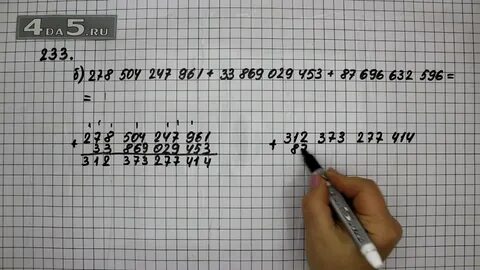 4DA5.RU
233.
б) 278 504 247 961 + 33 869 029 453 + 87 696 632 596 =
=
+ 278 504 247 961
33 869 029 453
312 373 277 414
+ 312 373 277 414
87